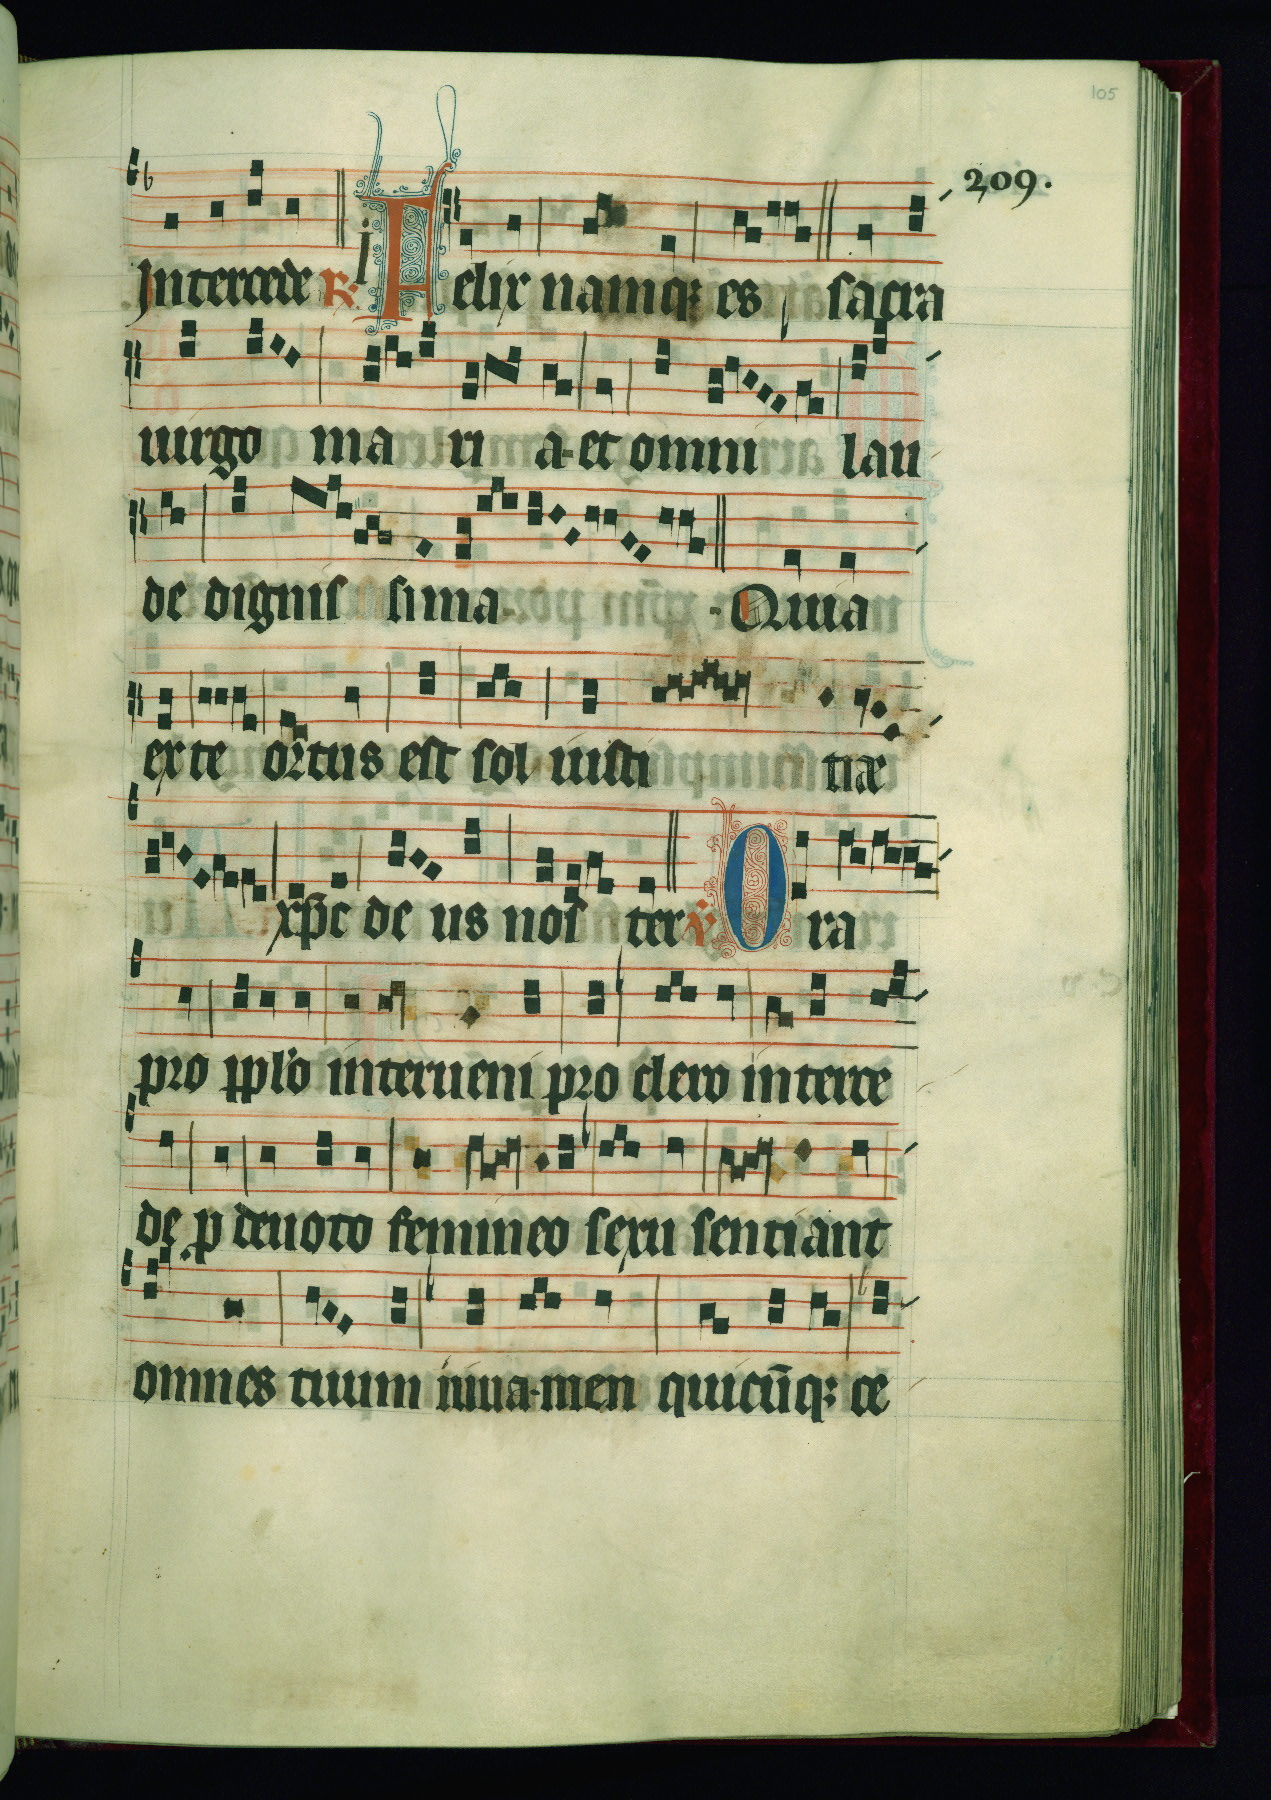 105
209.
Intercede R. i Felix namq; es sacra
uirgo ma ri a. et omni lau
de dignis sima. Quia
ex te ortus est sol iusti tiae
xp̄c de us nos ter V. Ora
pro pplo interueni pro clero interce
de. p deuoto femineo sexu sentiant
omnes tuum iuua.men quicūq; ce